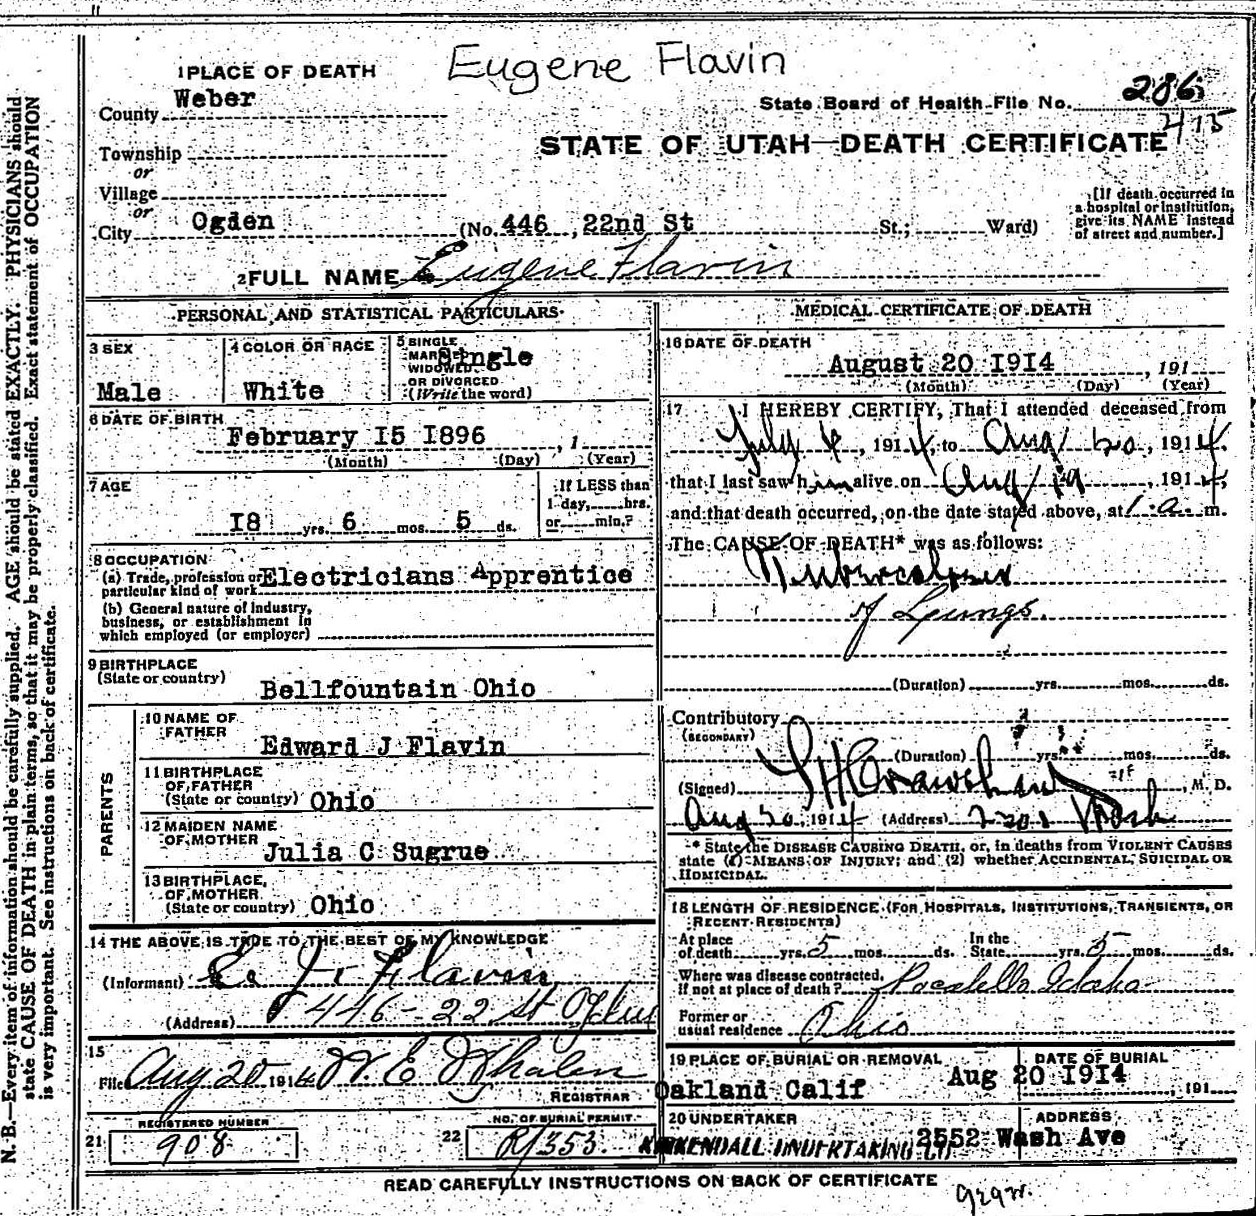 Eugene Flavin
1 PLACE OF DEATH
County Weber
State Board of Health File No. 286
415
STATE OF UTAH—DEATH CERTIFICATE
Township
or
Village
or
City Ogden (No. 446, 22nd St St.; Ward)
[If death occurred in a hospital or institution, give its NAME instead of street and number.]
2 FULL NAME Eugene Flavin
PERSONAL AND STATISTICAL PARTICULARS
3 SEX Male
4 COLOR OR RACE White
5 SINGLE MARRIED WIDOWED OR DIVORCED (Write the word) Single
6 DATE OF BIRTH February I5 I896, 1
(Month) (Day) (Year)
7 AGE I8 yrs. 6 mos. 5 ds.
If LESS than 1 day, hrs. or min.?
8 OCCUPATION
(a) Trade, profession or particular kind of work Electricians Apprentice
(b) General nature of industry, business, or establishment in which employed (or employer)
9 BIRTHPLACE
(State or country) Bellfountain Ohio
PARENTS
10 NAME OF FATHER Edward J Flavin
11 BIRTHPLACE OF FATHER (State or country) Ohio
12 MAIDEN NAME OF MOTHER Julia C Sugrue
13 BIRTHPLACE OF MOTHER (State or country) Ohio
14 THE ABOVE IS TRUE TO THE BEST OF MY KNOWLEDGE
(Informant) E. J. Flavin
(Address) 446-22 St Ogden
15
Filed Aug 20 1914 W. E. Whalen
REGISTRAR
21 REGISTERED NUMBER 908
22 NO. OF BURIAL PERMIT R/353
MEDICAL CERTIFICATE OF DEATH
16 DATE OF DEATH
August 20 I9I4, 191
(Month) (Day) (Year)
17 I HEREBY CERTIFY, That I attended deceased from
July 4, 1914, to Aug 20, 1914,
that I last saw him alive on Aug 19, 1914,
and that death occurred, on the date stated above, at 1 a. m.
The CAUSE OF DEATH* was as follows:
Tuberculosis
of Lungs.
(Duration) yrs. mos. ds.
Contributory
(SECONDARY)
(Duration) yrs. mos. ds.
(Signed) M. D.
Aug 20, 1914 (Address) Wash
* State the DISEASE CAUSING DEATH, or, in deaths from VIOLENT CAUSES
state (1) MEANS OF INJURY; and (2) whether ACCIDENTAL, SUICIDAL OR
HOMICIDAL.
18 LENGTH OF RESIDENCE (FOR HOSPITALS, INSTITUTIONS, TRANSIENTS, OR RECENT RESIDENTS)
At place of death yrs. 5 mos. ds. In the State yrs. 5 mos. ds.
Where was disease contracted, if not at place of death? Pocatello Idaho
Former or usual residence Ohio
19 PLACE OF BURIAL OR REMOVAL Oakland Calif
DATE OF BURIAL Aug 20 I9I4, 191
20 UNDERTAKER KIRKENDALL UNDERTAKING
ADDRESS 2552 Wash Ave
READ CAREFULLY INSTRUCTIONS ON BACK OF CERTIFICATE
N. B.—Every item of information should be carefully supplied. AGE should be stated EXACTLY. PHYSICIANS should
state CAUSE OF DEATH in plain terms, so that it may be properly classified. Exact statement of OCCUPATION
is very important. See instructions on back of certificate.